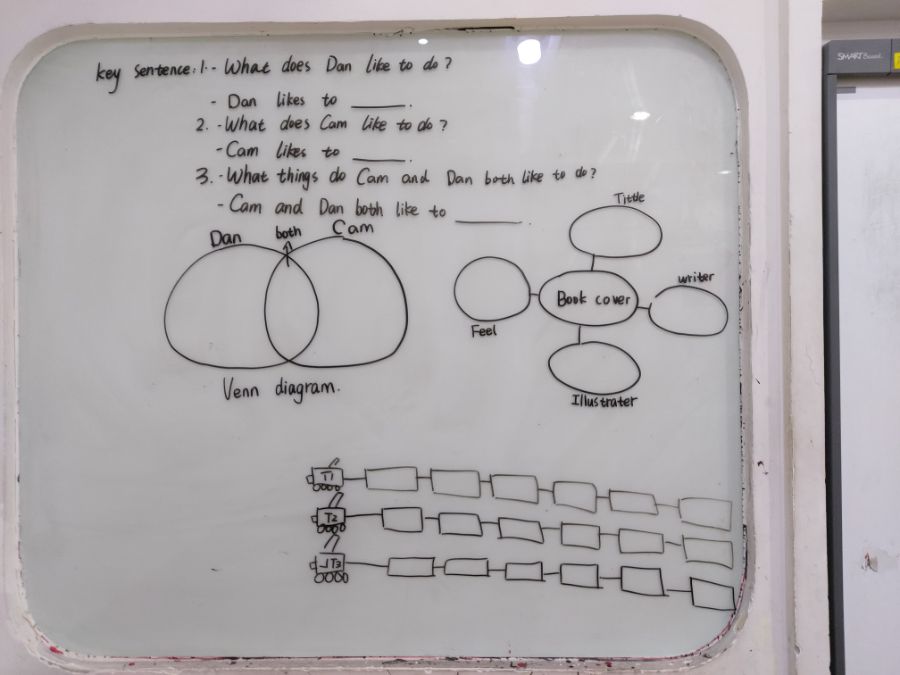 key sentence: 1. - What does Dan like to do?
- Dan likes to ______.
2. - What does Cam like to do?
- Cam likes to ______.
3. - What things do Cam and Dan both like to do?
- Cam and Dan both like to ______.
Dan both Cam
Venn diagram.
Tittle
writer
Book cover
Feel
Illustrater
T1
T2
T3
SMART Board